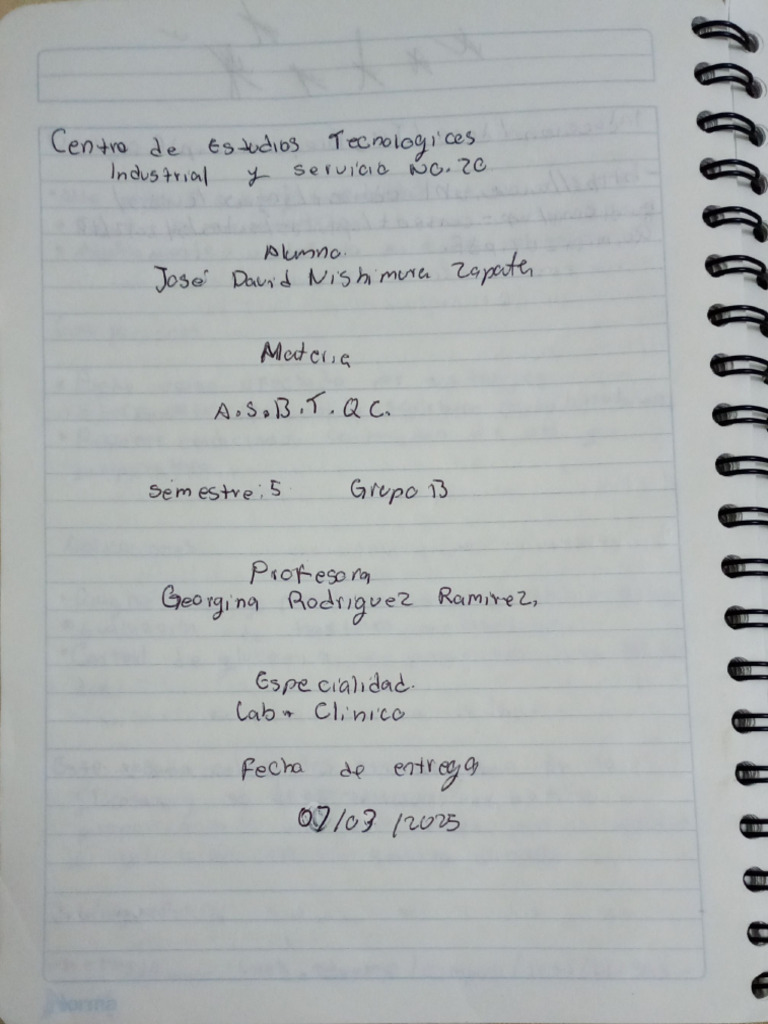 Centro de Estudios Tecnologicos
Industrial y servicio No. 20
Alumno.
José David Nishimura Zapata
Materia
A.S.B.T.QC.
Semestre: 5 Grupo B
Profesora
Georgina Rodriguez Ramirez.
Especialidad.
Lab. Clinico
Fecha de entrega
07/03/2025
Norma